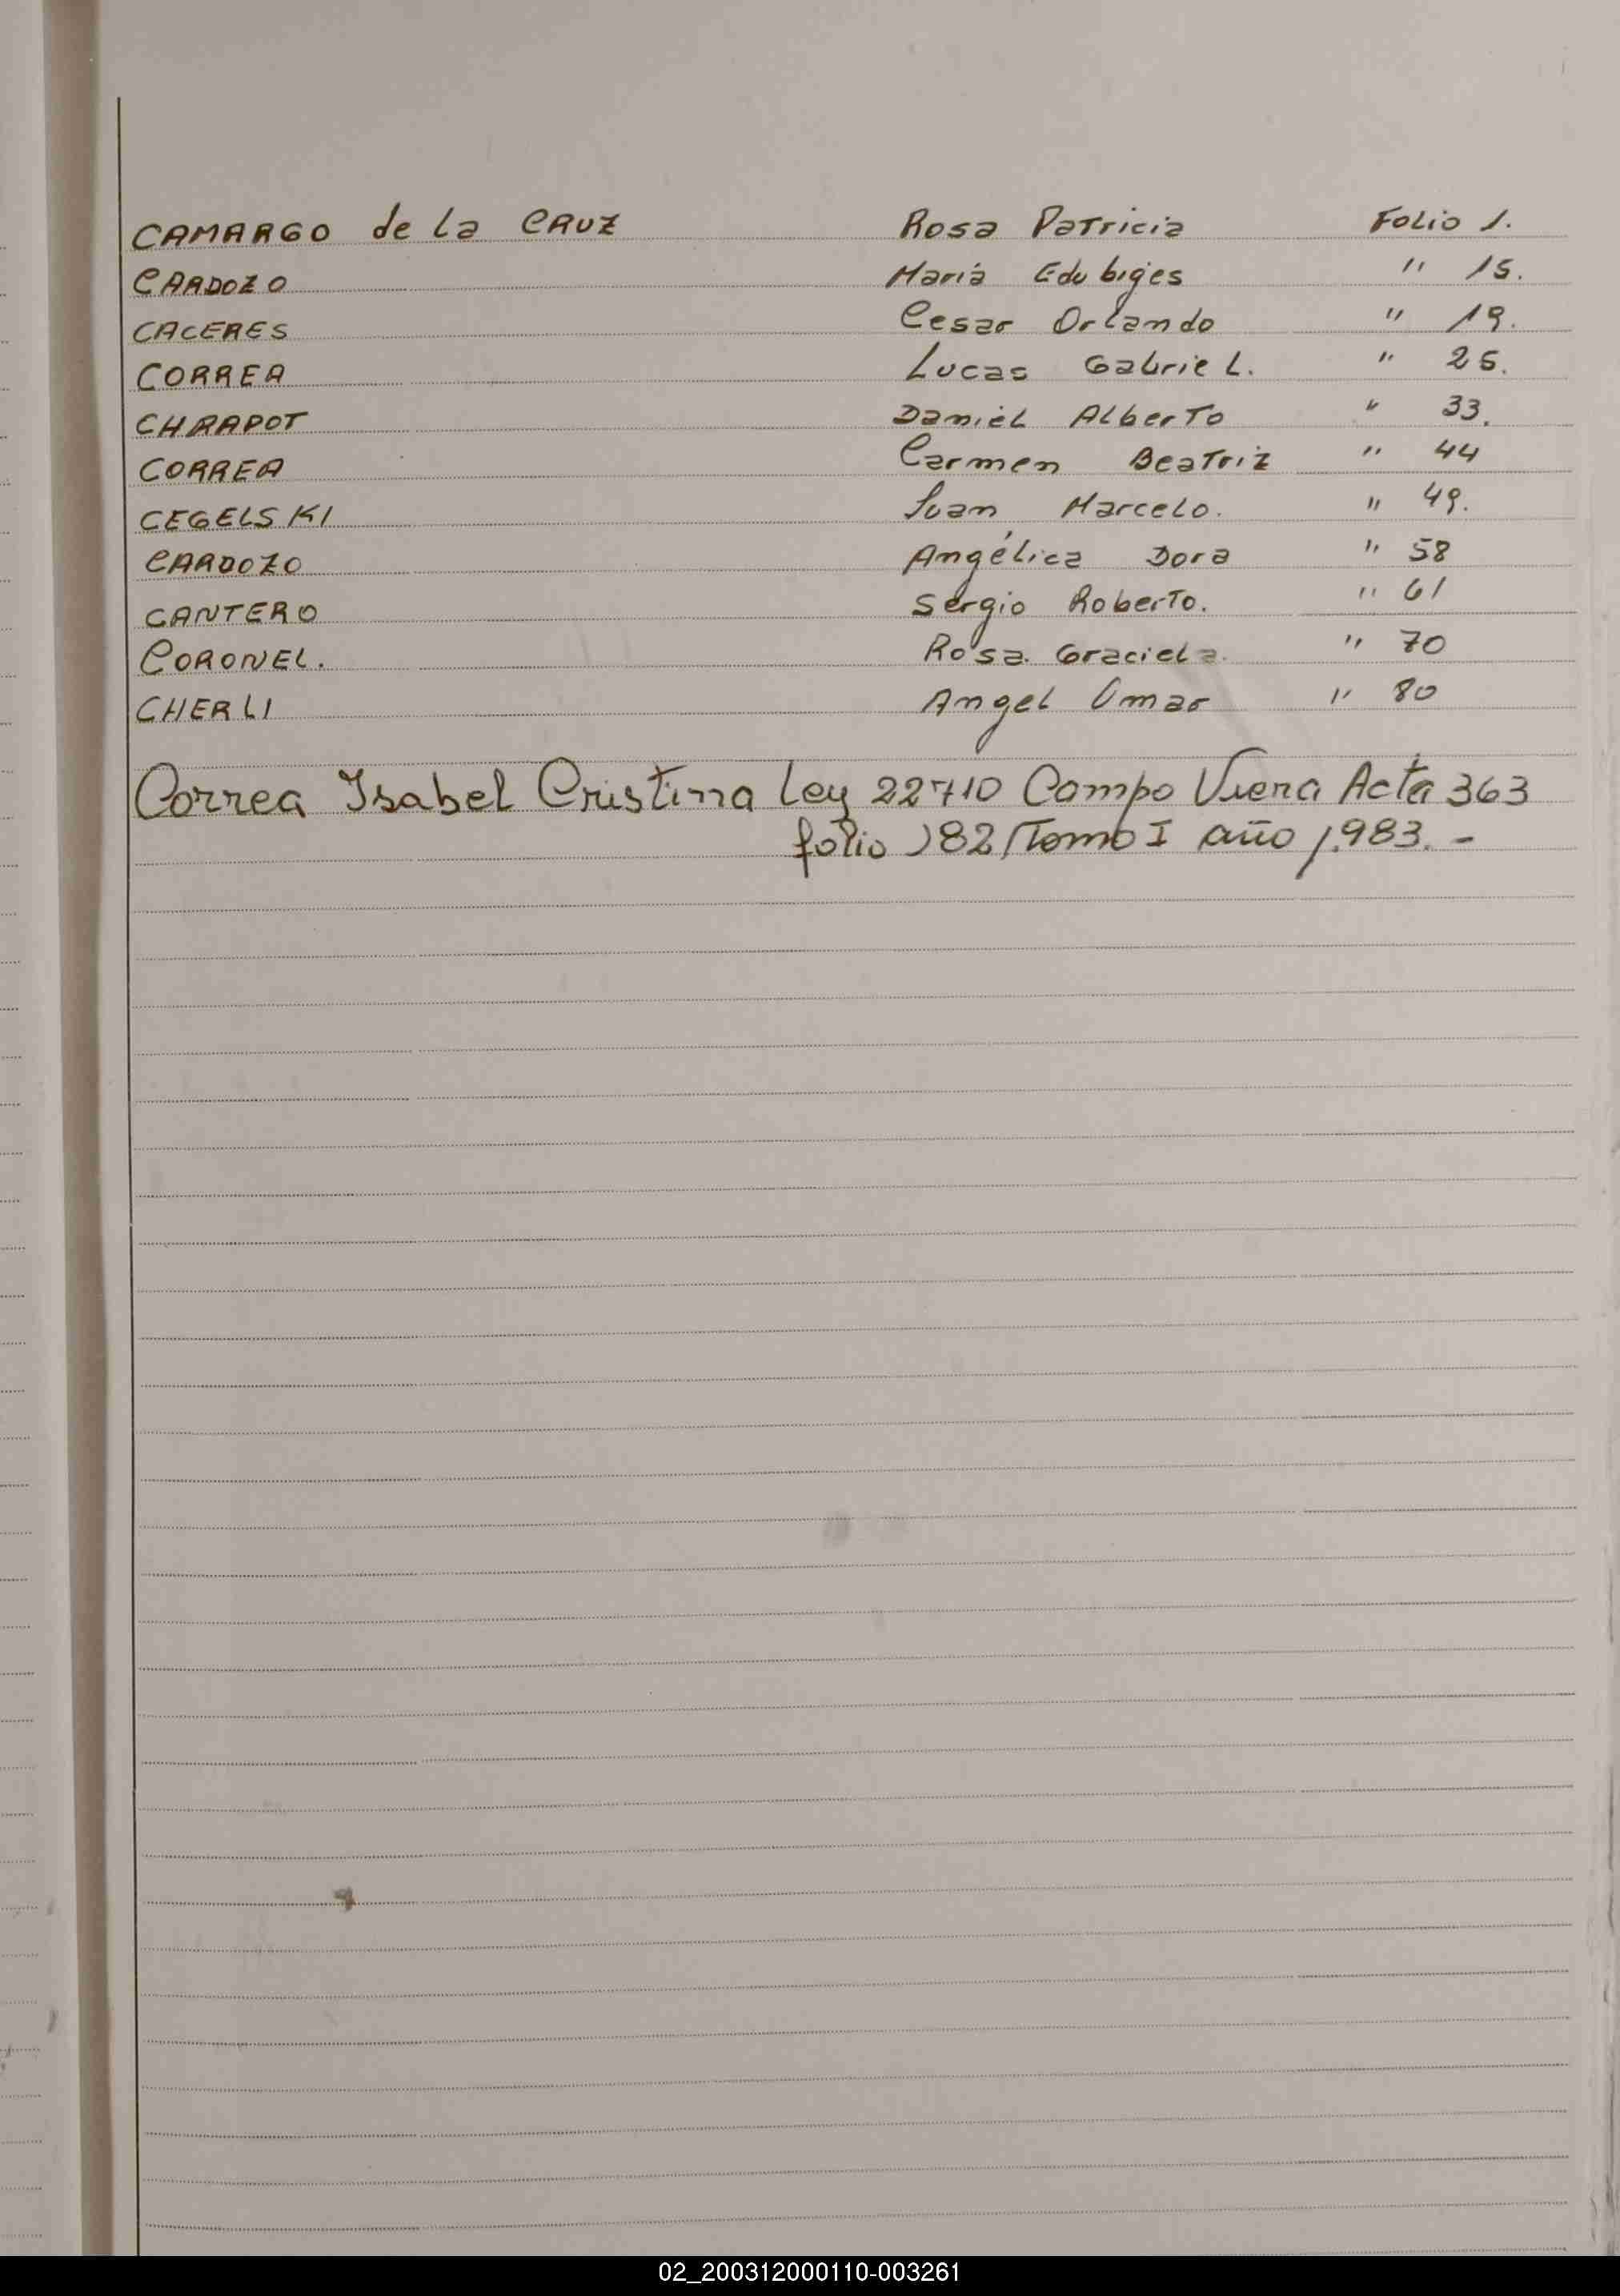 CAMARGO de la CRUZ Rosa Patricia Folio 1.
CARDOZO Maria Edubiges " 15.
CACERES Cesar Orlando " 19.
CORREA Lucas Gabriel. " 25.
CHRAPOT Daniel Alberto " 33.
CORREA Carmen Beatriz " 44
CEGELSKI Juan Marcelo. " 49.
CARDOZO Angélica Dora " 58
CANTERO Sergio Roberto. " 61
CORONEL. Rosa. Graciela. " 70
CHERLI Angel Omar " 80
Correa Isabel Cristina Ley 22710 Campo Viera Acta 363
folio 182 Tomo I año 1.983. -
02_200312000110-003261